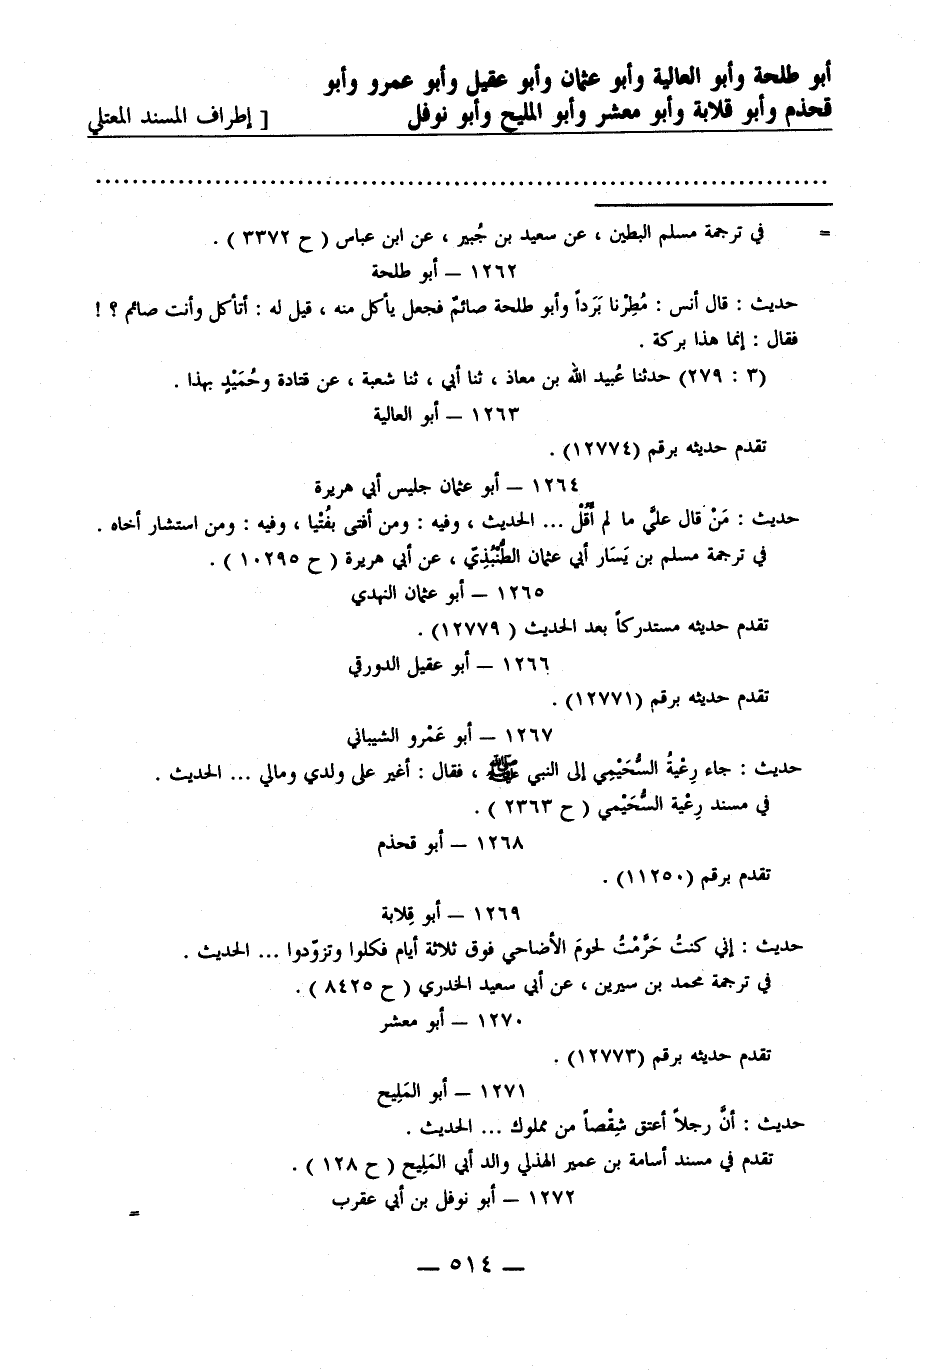 أبو طلحة وأبو العالية وأبو عثمان وأبو عقيل وأبو عمرو وأبو
قحذم وأبو قلابة وأبو معشر وأبو المليح وأبو نوفل [ إطراف المسند المعتلي
................................................................................
= في ترجمة مسلم البطين ، عن سعيد بن جُبير ، عن ابن عباس ( ح ٣٣٧٢ ) .
١٢٦٢ – أبو طلحة
حديث : قال أنس : مُطِرْنا بَرَداً وأبو طلحة صائمٌ فجعل يأكل منه ، قيل له : أتأكل وأنت صائم ؟ !
فقال : إنما هذا بركة .
(٣ : ٢٧٩) حدثنا عُبيد الله بن معاذ ، ثنا أبي ، ثنا شعبة ، عن قتادة وحُمَيْدٍ بهذا .
١٢٦٣ – أبو العالية
تقدم حديثه برقم (١٢٧٧٤) .
١٢٦٤ – أبو عثمان جليس أبي هريرة
حديث : مَنْ قال عليَّ ما لم أَقُلْ ... الحديث ، وفيه : ومن أفتى بفُتْيا ، وفيه : ومن استشار أخاه .
في ترجمة مسلم بن يَسَار أبي عثمان الطُّنْبُذِيّ ، عن أبي هريرة ( ح ١٠٢٩٥ ) .
١٢٦٥ – أبو عثمان النهدي
تقدم حديثه مستدركاً بعد الحديث ( ١٢٧٧٩) .
١٢٦٦ – أبو عقيل الدورقي
تقدم حديثه برقم (١٢٧٧١) .
١٢٦٧ – أبو عَمْرو الشيباني
حديث : جاء رِعْيةُ السُّحَيْمِي إلى النبي ﷺ ، فقال : أغير على ولدي ومالي ... الحديث .
في مسند رِعْية السُّحَيْمي ( ح ٢٣٦٣ ) .
١٢٦٨ – أبو قحذم
تقدم برقم (١١٢٥٠) .
١٢٦٩ – أبو قِلابة
حديث : إني كنتُ حَرَّمْتُ لحومَ الأضاحي فوق ثلاثة أيام فكلوا وتزوّدوا ... الحديث .
في ترجمة محمد بن سيرين ، عن أبي سعيد الخدري ( ح ٨٤٢٥ ) .
١٢٧٠ – أبو معشر
تقدم حديثه برقم (١٢٧٧٣) .
١٢٧١ – أبو المَلِيح
حديث : أنَّ رجلاً أعتق شِقْصاً من مملوك ... الحديث .
تقدم في مسند أسامة بن عمير الهذلي والد أبي المَلِيح ( ح ١٢٨ ) .
١٢٧٢ – أبو نوفل بن أبي عقرب
=
— ٥١٤ —